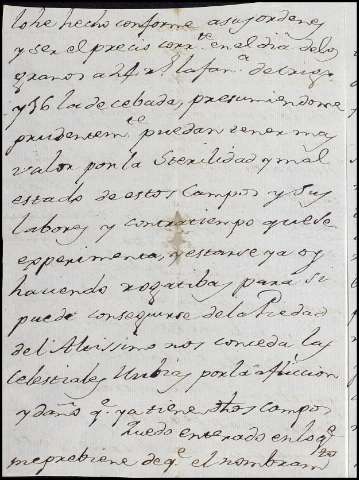 lo he hecho conforme a sus ordenes
y ser el precio corr.te en el dia de los
granos a 24 r.s la fan.a de trigo
y 16 la de cebada, presumiendome
prudentem.te puedan tener mas
valor por la Sterilidad y mal
estado de estos Campos y sus
labores y contratiempo que se
experimenta, y estarse ya oy
haciendo rogatibas para si
puede conseguirse de la Piedad
del Altissimo nos conceda las
Celestiales llubias por la afliccion
y daño q.e ya tiene dhos campos
Quedo enterado en lo q.e
me prebiene de q.e el nombram